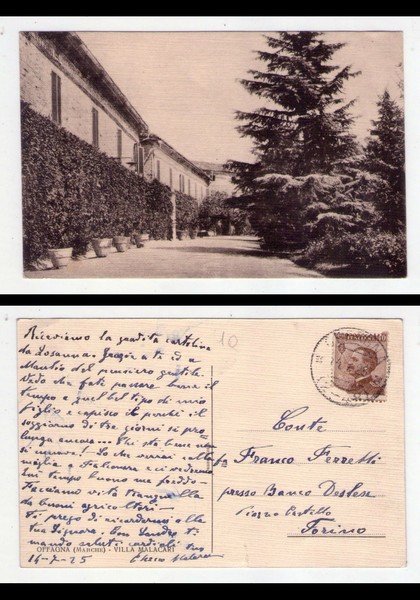 Riceviamo la gradita cartolina
da Losanna. Grazie a te ed a
Manlio del pensiero gentile.
Vedo che fate passare bene il
tempo a quel bel tipo di mio
figlio e capisco il perché il
soggiorno di tre giorni si pro=
lunga ancora... Chi sta bene non
si muove! So che verrai colla
moglie a Fabriano e ci vedremo
bel tempo buono ma freddo.
Facciamo vita tranquilla
da buoni agricoltori.
Ti prego di ricordarmi alla
tua Signora. Con Sandro ti
mando saluti cordiali tuo
OFFAGNA (MARCHE) - VILLA MALACARI
14-7-25
10
Conte
Franco Ferretti
presso Banco
Piazza Castello
Torino